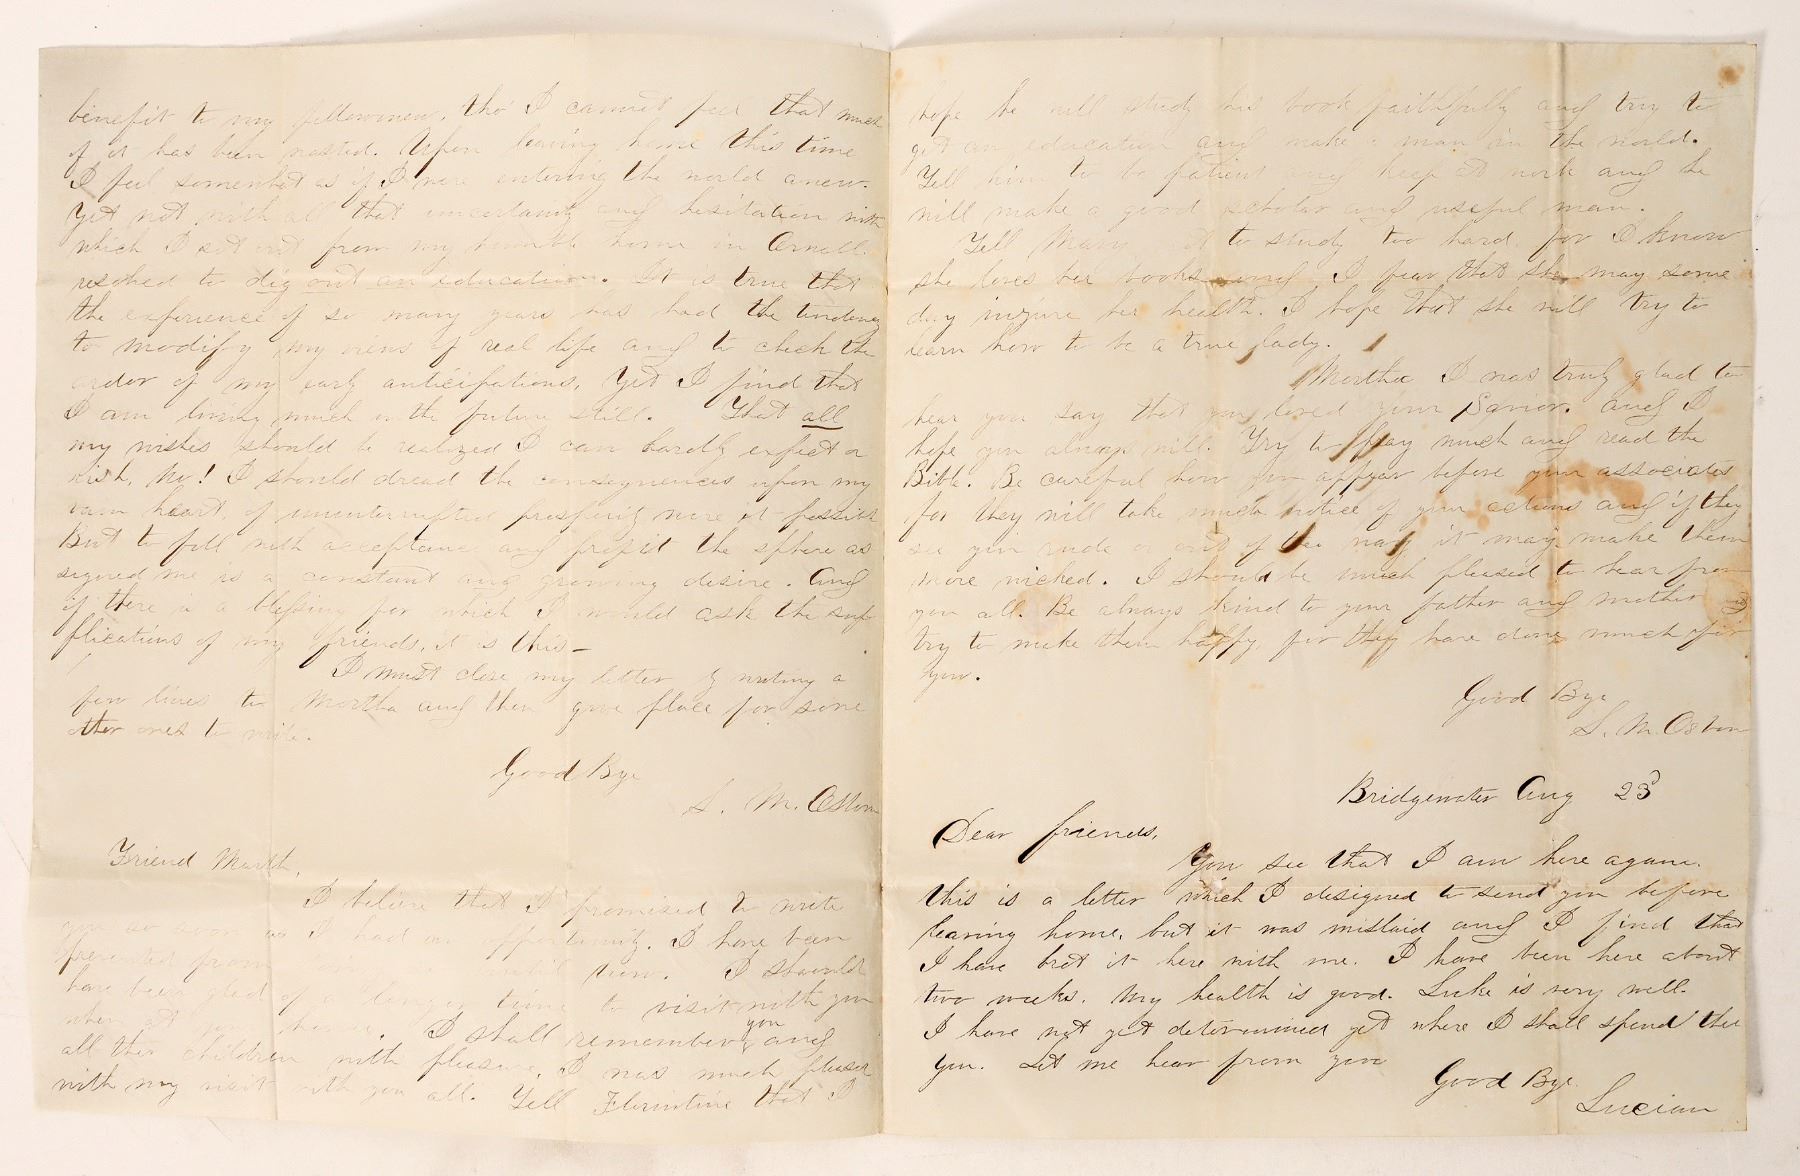 benefit to my fellowmen. tho' I cannot feel that much
of it has been wasted. Upon leaving home this time
I feel somewhat as if I were entering the world anew.
Yet not with all that uncertainty and hesitation with
which I set out from my humble home in
resolved to dig out an education. It is true that
the experience of so many years has had the tendency
to modify my views of real life and to check the
ardor of my early anticipations. Yet I find that
I am living much in the future still. That all
my wishes should be realized I can hardly expect or
wish, No! I should dread the consequences upon my
vain heart, of uninterrupted prosperity were it possible
But to fill with acceptance and profit the sphere as
signed me is a constant and growing desire. And
if there is a blessing for which I would ask the sup
plications of my friends, it is this—
I must close my letter by writing a
few lines to Martha and then give place for some
other ones to write.
Good Bye
L. M. Osborn
Friend Marth,
I believe that I promised to write
you as soon as I had an opportunity. I have been
prevented from until now. I should
have been glad of a longer time to visit with you
when at your house. I shall remember you and
all the children with pleasure. I was much pleased
with my visit with you all. Tell Florintine that I
hope he will study his book faithfully and try to
get an education and make a man in the world.
Tell him to be patient and keep at work and he
will make a good scholar and useful man.
Tell Mary not to study too hard, for I know
she loves her books and I fear that she may some
day injure her health. I hope that she will try to
learn how to be a true lady.
Martha I was truly glad to
hear you say that you loved your Savior. and I
hope you always will. Try to pray much and read the
Bible. Be careful how you appear before your associates
for they will take much notice of your actions and if they
see you rude or out of the way it may make them
more wicked. I should be much pleased to hear from
you all. Be always kind to your father and mother and
try to make them happy, for they have done much for
you.
Good Bye
L. M. Osborn
Bridgewater Aug 23
Dear friends,
You see that I am here again.
this is a letter which I designed to send you before
leaving home, but it was mislaid and I find that
I have brot it here with me. I have been here about
two weeks. My health is good. Luke is very well.
I have not yet determined yet where I shall spend the
you. Let me hear from you
Good Bye.
Lucian